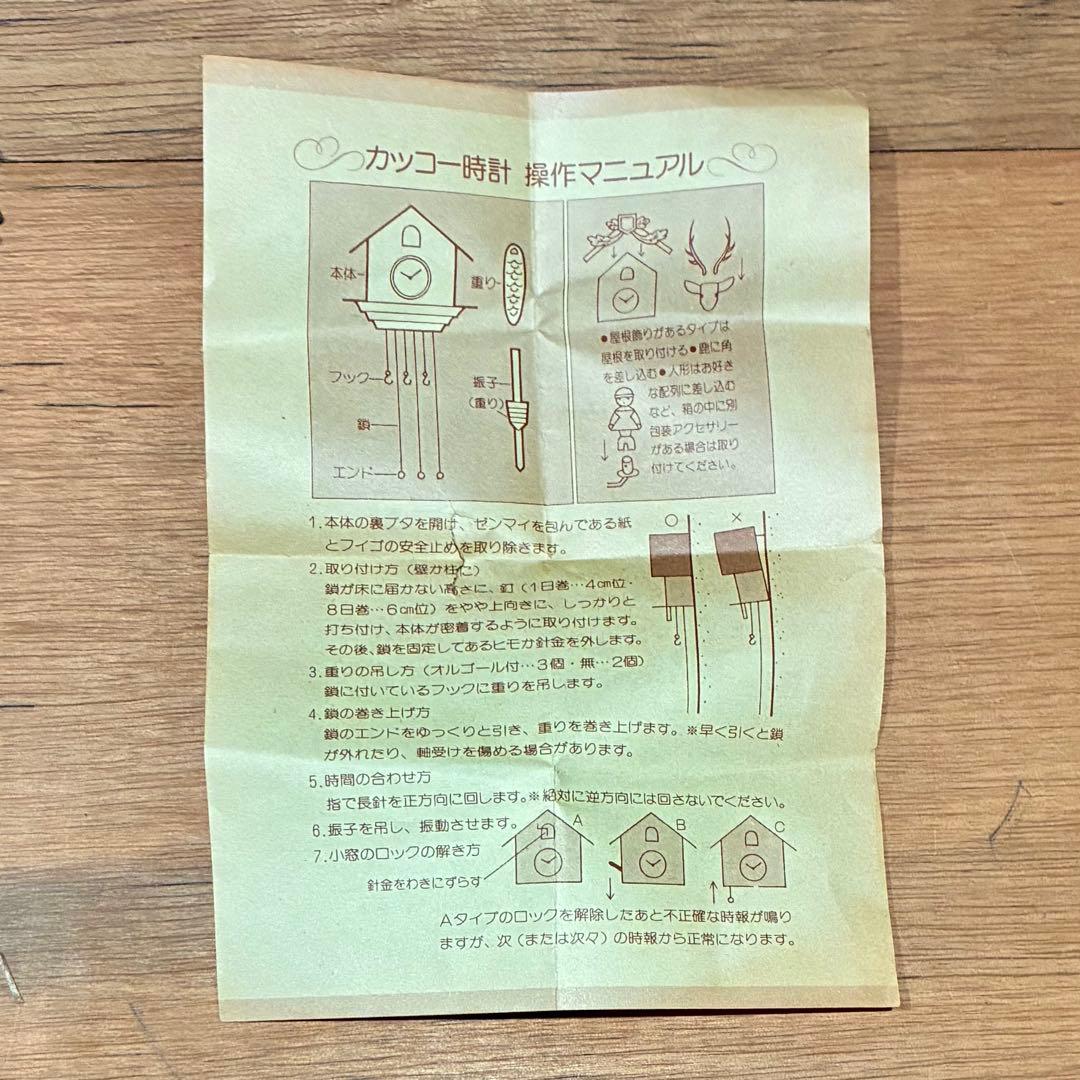 カッコー時計 操作マニュアル
本体
重り
フック
振子
(重り)
鎖
エンド
●屋根飾りがあるタイプは
屋根を取り付ける●鹿に角
を差し込む●人形はお好き
な配列に差し込む
など、箱の中に別
包装アクセサリー
がある場合は取り
付けてください。
1.本体の裏ブタを開け、ゼンマイを包んである紙
とフイゴの安全止めを取り除きます。
2.取り付け方(壁か柱に)
鎖が床に届かない高さに、釘(1日巻…4cm位・
8日巻…6cm位)をやや上向きに、しっかりと
打ち付け、本体が密着するように取り付けます。
その後、鎖を固定してあるヒモか針金を外します。
○ ×
3.重りの吊し方(オルゴール付…3個・無…2個)
鎖に付いているフックに重りを吊します。
4.鎖の巻き上げ方
鎖のエンドをゆっくりと引き、重りを巻き上げます。※早く引くと鎖
が外れたり、軸受けを傷める場合があります。
5.時間の合わせ方
指で長針を正方向に回します。※絶対に逆方向には回さないでください。
6.振子を吊し、振動させます。
7.小窓のロックの解き方
針金をわきにずらす
A
B
C
Aタイプのロックを解除したあと不正確な時報が鳴り
ますが、次(または次々)の時報から正常になります。